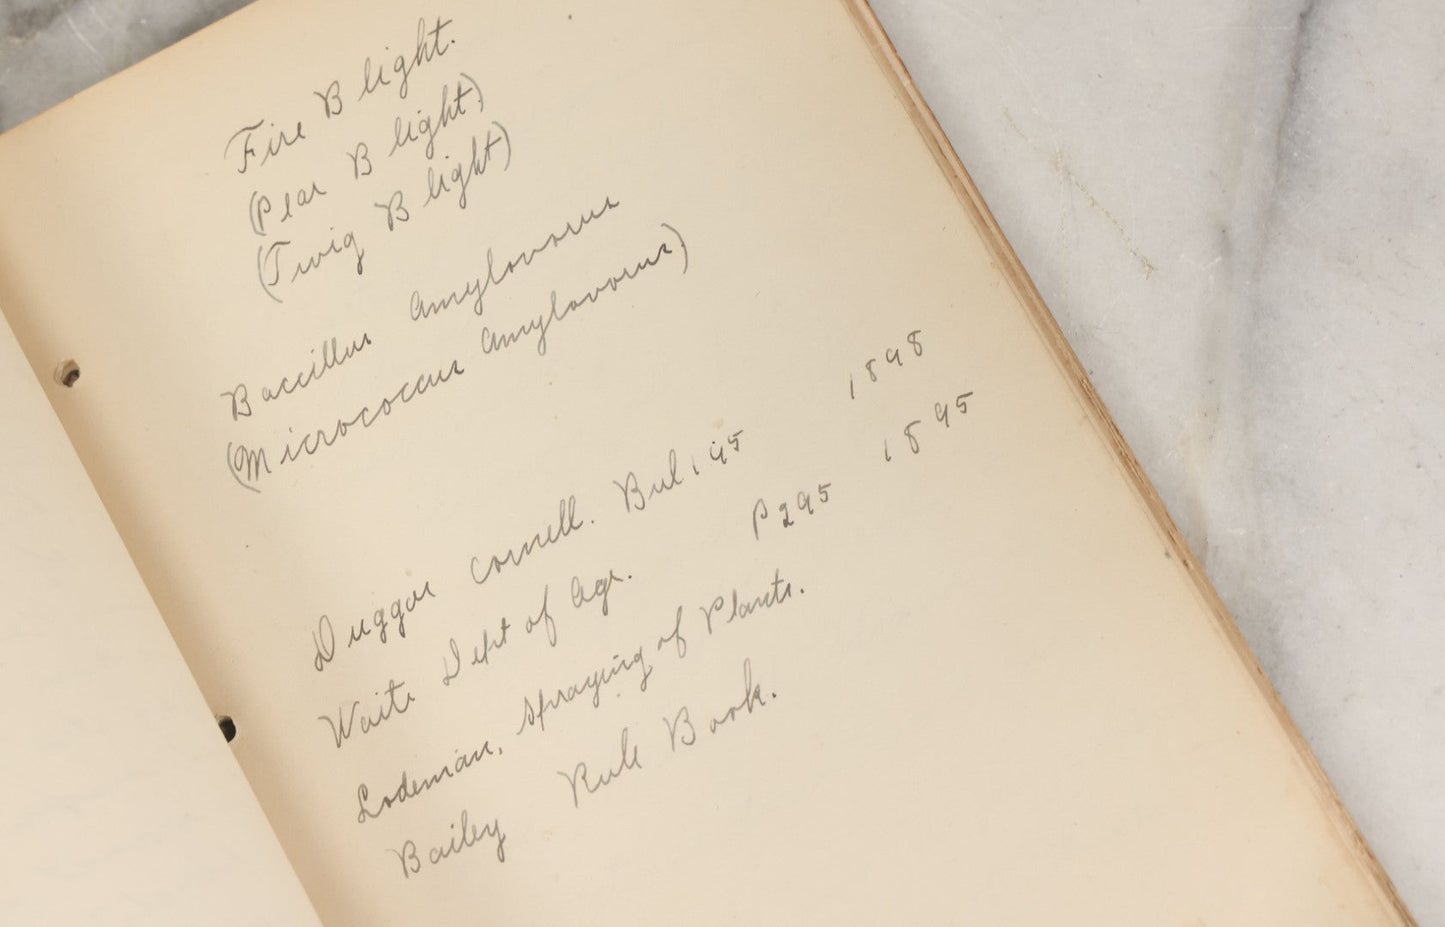 Fire Blight.
(Pear Blight)
(Twig Blight)
Bacillus Amylovorus
(Micrococcus Amylovorus)
Duggar Cornell. Bul 145 1898
Waite Dept of Agr. P 295 1895
Lodeman, Spraying of Plants.
Bailey Rule Book.